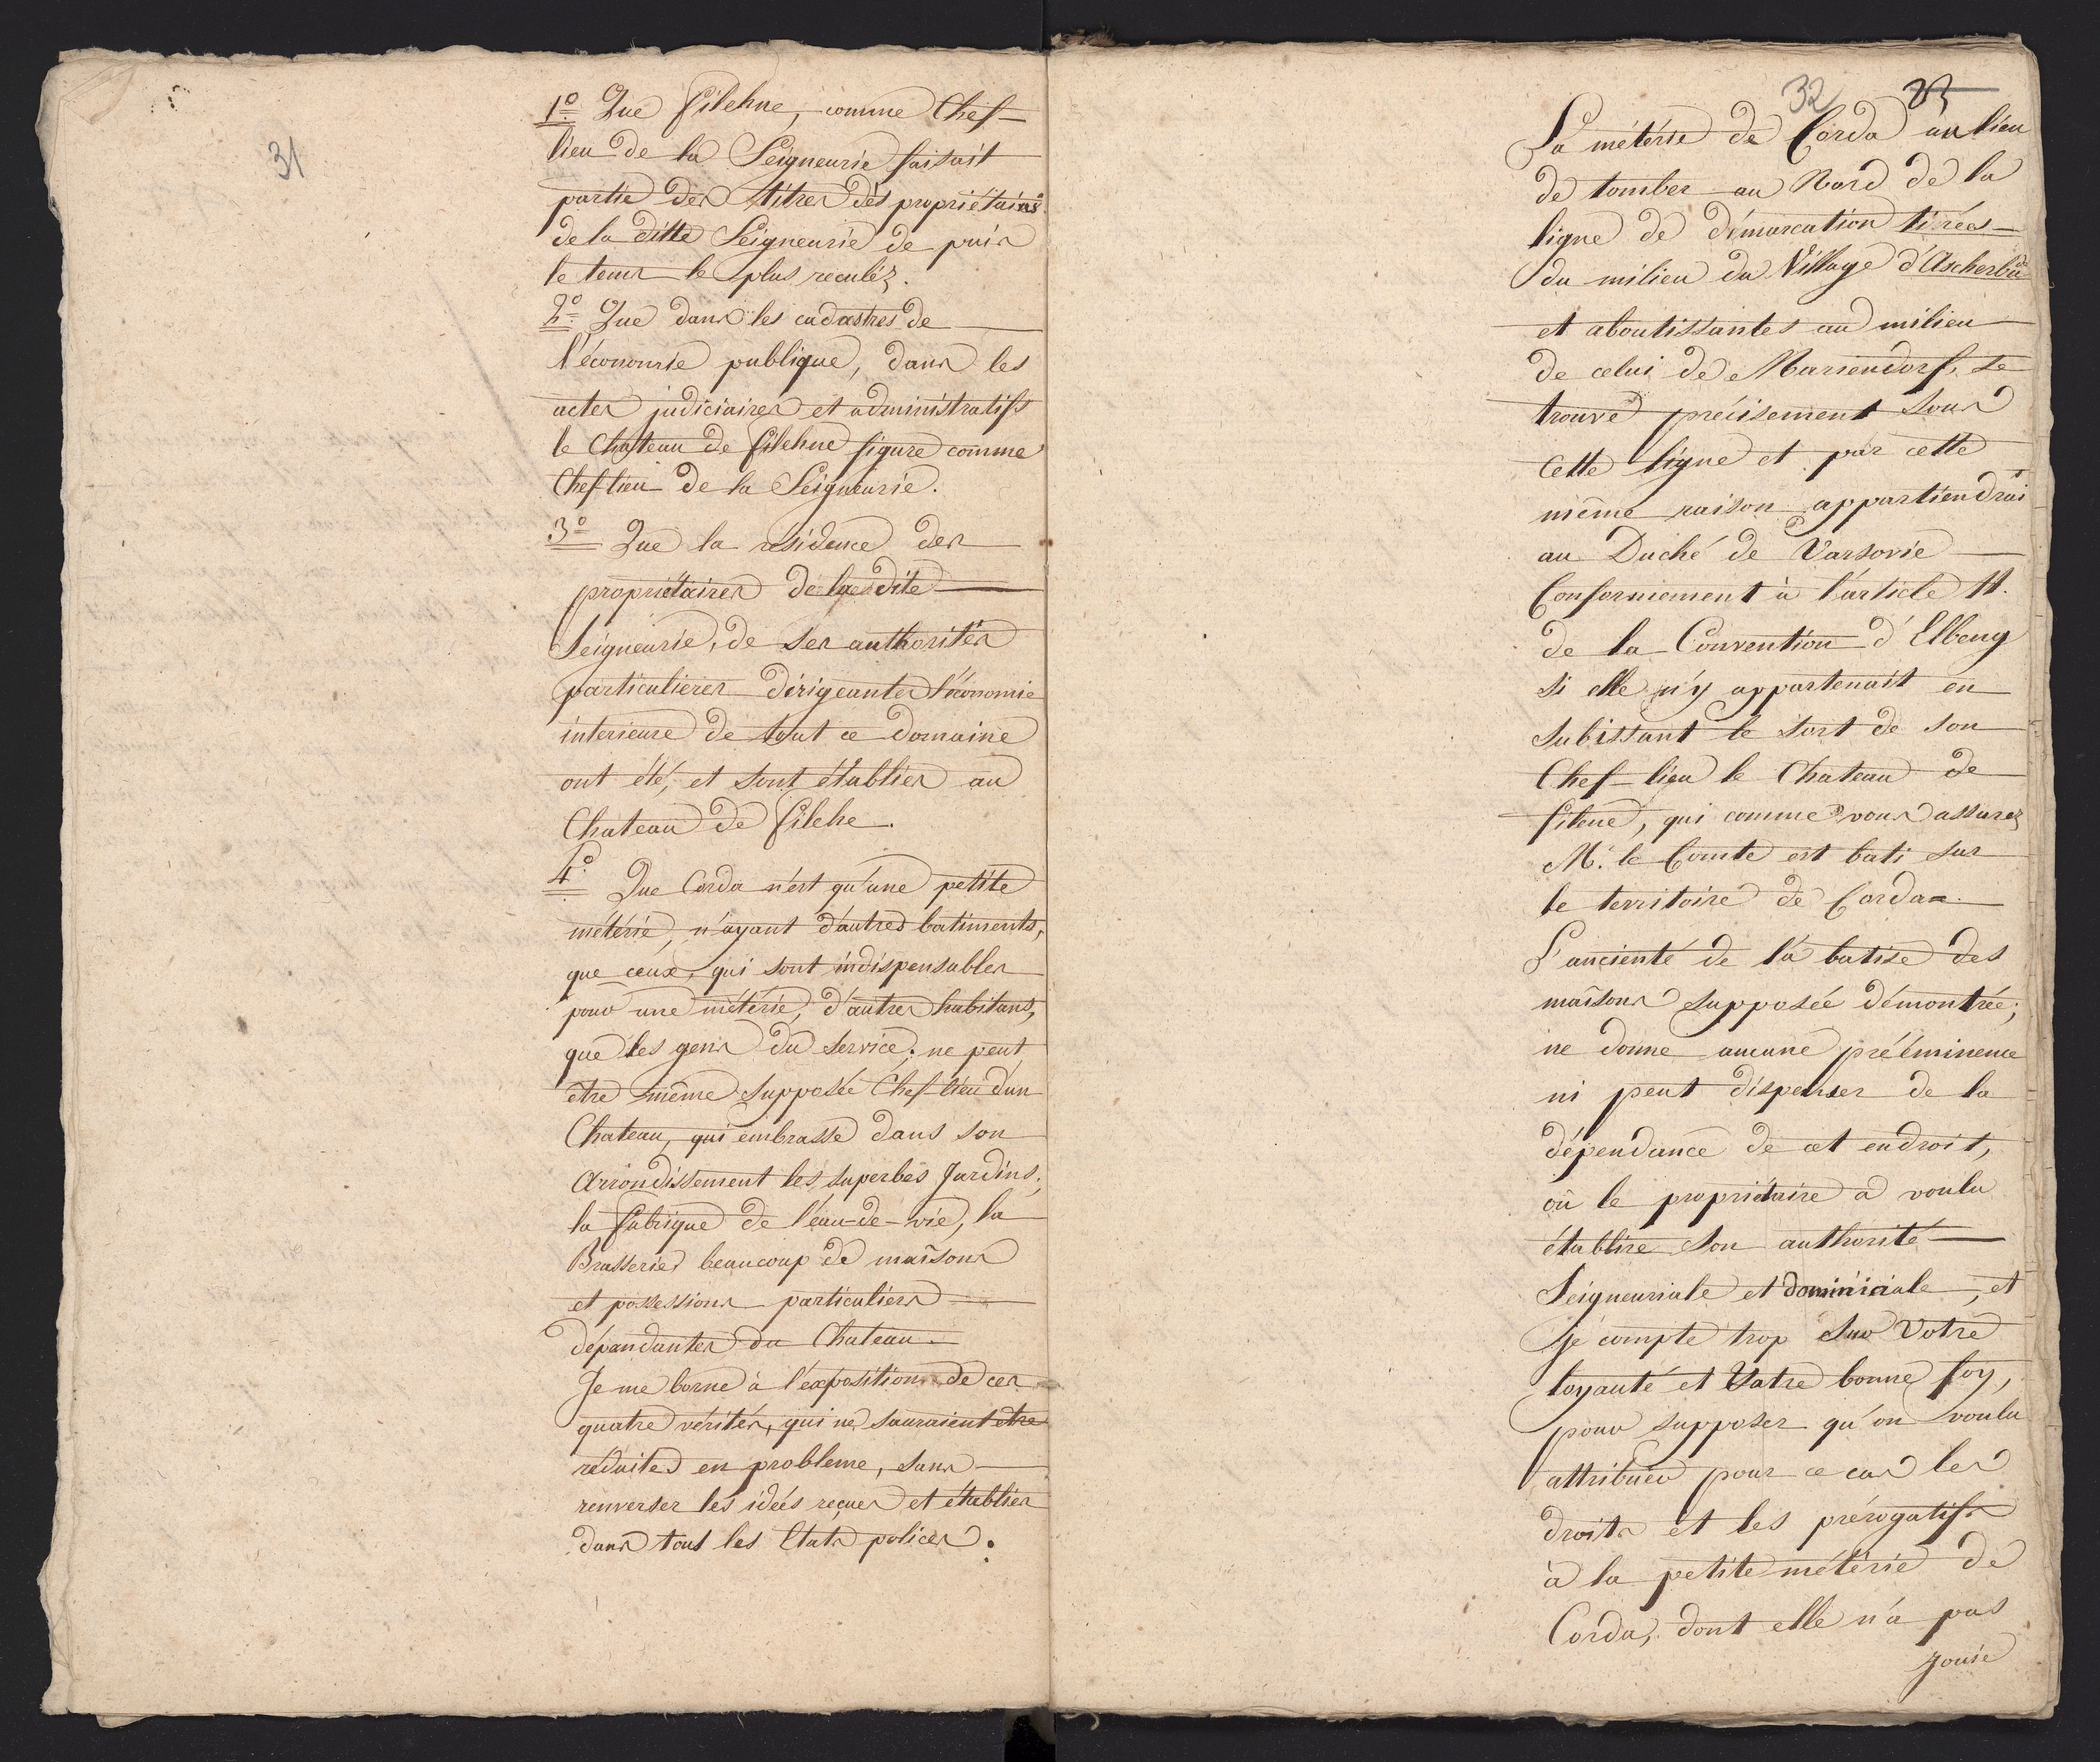 31
1º Que Filehne, comme Chef-
lieu de la Seigneurie faisait
partie des titres des propriétaires
de la ditte Seigneurie de puis
le tems le plus reculéz.
2º Que dans les cadastres de
l'économie publique, dans les
actes judiciaires et administratifs
le Chateau de Filehne figure comme
Chef lieu de la Seigneurie.
3º Que la résidence des
propriétaires de la dite
Seigneurie, de ses authorités
particulieres dirigeantes l'économie
interieure de tout ce domaine
ont été, et sont établies au
Chateau de Filehe.
4º Que Corda n'est qu'une petite
métérie, n'ayant d'autres batiments,
que ceux, qui sont indispensables
pour une métérie, d'autres habitans,
que les gens du service; ne peut
être même supposée Chef-lieu d'un
Chateau, qui embrasse dans son
Arrondissement les superbes Jardins,
la fabrique de l'eau-de-vie, la
Brasserie, beaucoup de maisons
et possessions particuliers
dépandantes du Chateau.
Je me borne à l'exposition de ces
quatre vérités, qui ne sauraient etre
reduites en probleme, sans
renverser les idées reçues et établies
dans tous les Etats policés.
32 23
La métérie de Corda au lieu
de tomber au Nord de la
ligne de démarcation tirées
du milieu du Village d'Ascherbude
et aboutissantes au milieu
de celui de Mariendorf, se
trouve précisement sous
Cette ligne et par cette
même raison appartiendrai
au Duché de Varsovie
Conformement à l'article 11.
de la Convention d'Elbeng
si elle n'y appartenait en
subissant le sort de son
Chef-lieu le Chateau de
filene, qui comme vous assurez
Mr. le Comte est bati sur
le territoire de Corda.
L'ancienté de la batise des
maisons supposée démontrée;
ne donne aucune prééminence
ni peut dispenser de la
dépendance de cet endroit,
où le propriétaire a voulu
établire son authorité
Seigneuriale et dominiciale, et
je compte trop sur Votre
loyauté et Votre bonne foy,
pour supposer qu'on voulu
attribuer pour ce cas les
droits et les prérogatifs
à la petite métérie de
Corda, dont elle n'a pas
jouie